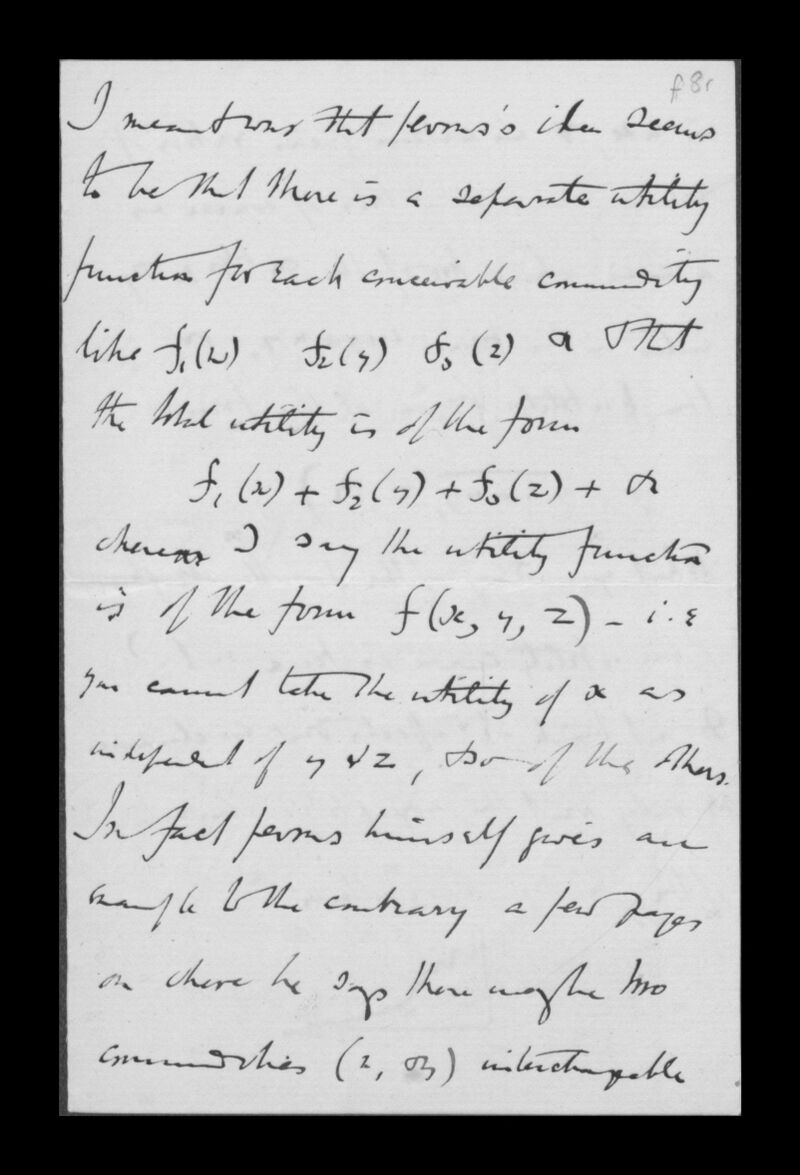 f 8r
I meant was that Jevons's idea seems
to be that there is a separate utility
function for each conceivable commodity
like f₁(x) f₂(y) f₃(z) &c & that
the total utility is of the form
f₁(x) + f₂(y) + f₃(z) + &c
whereas I say the utility function
is of the form f(x, y, z) – i.e
you cannot take the utility of x as
independent of y & z, & so of the others.
In fact Jevons himself gives an
example to the contrary a few pages
on where he says there may be two
commodities (x, & y) interchangeable